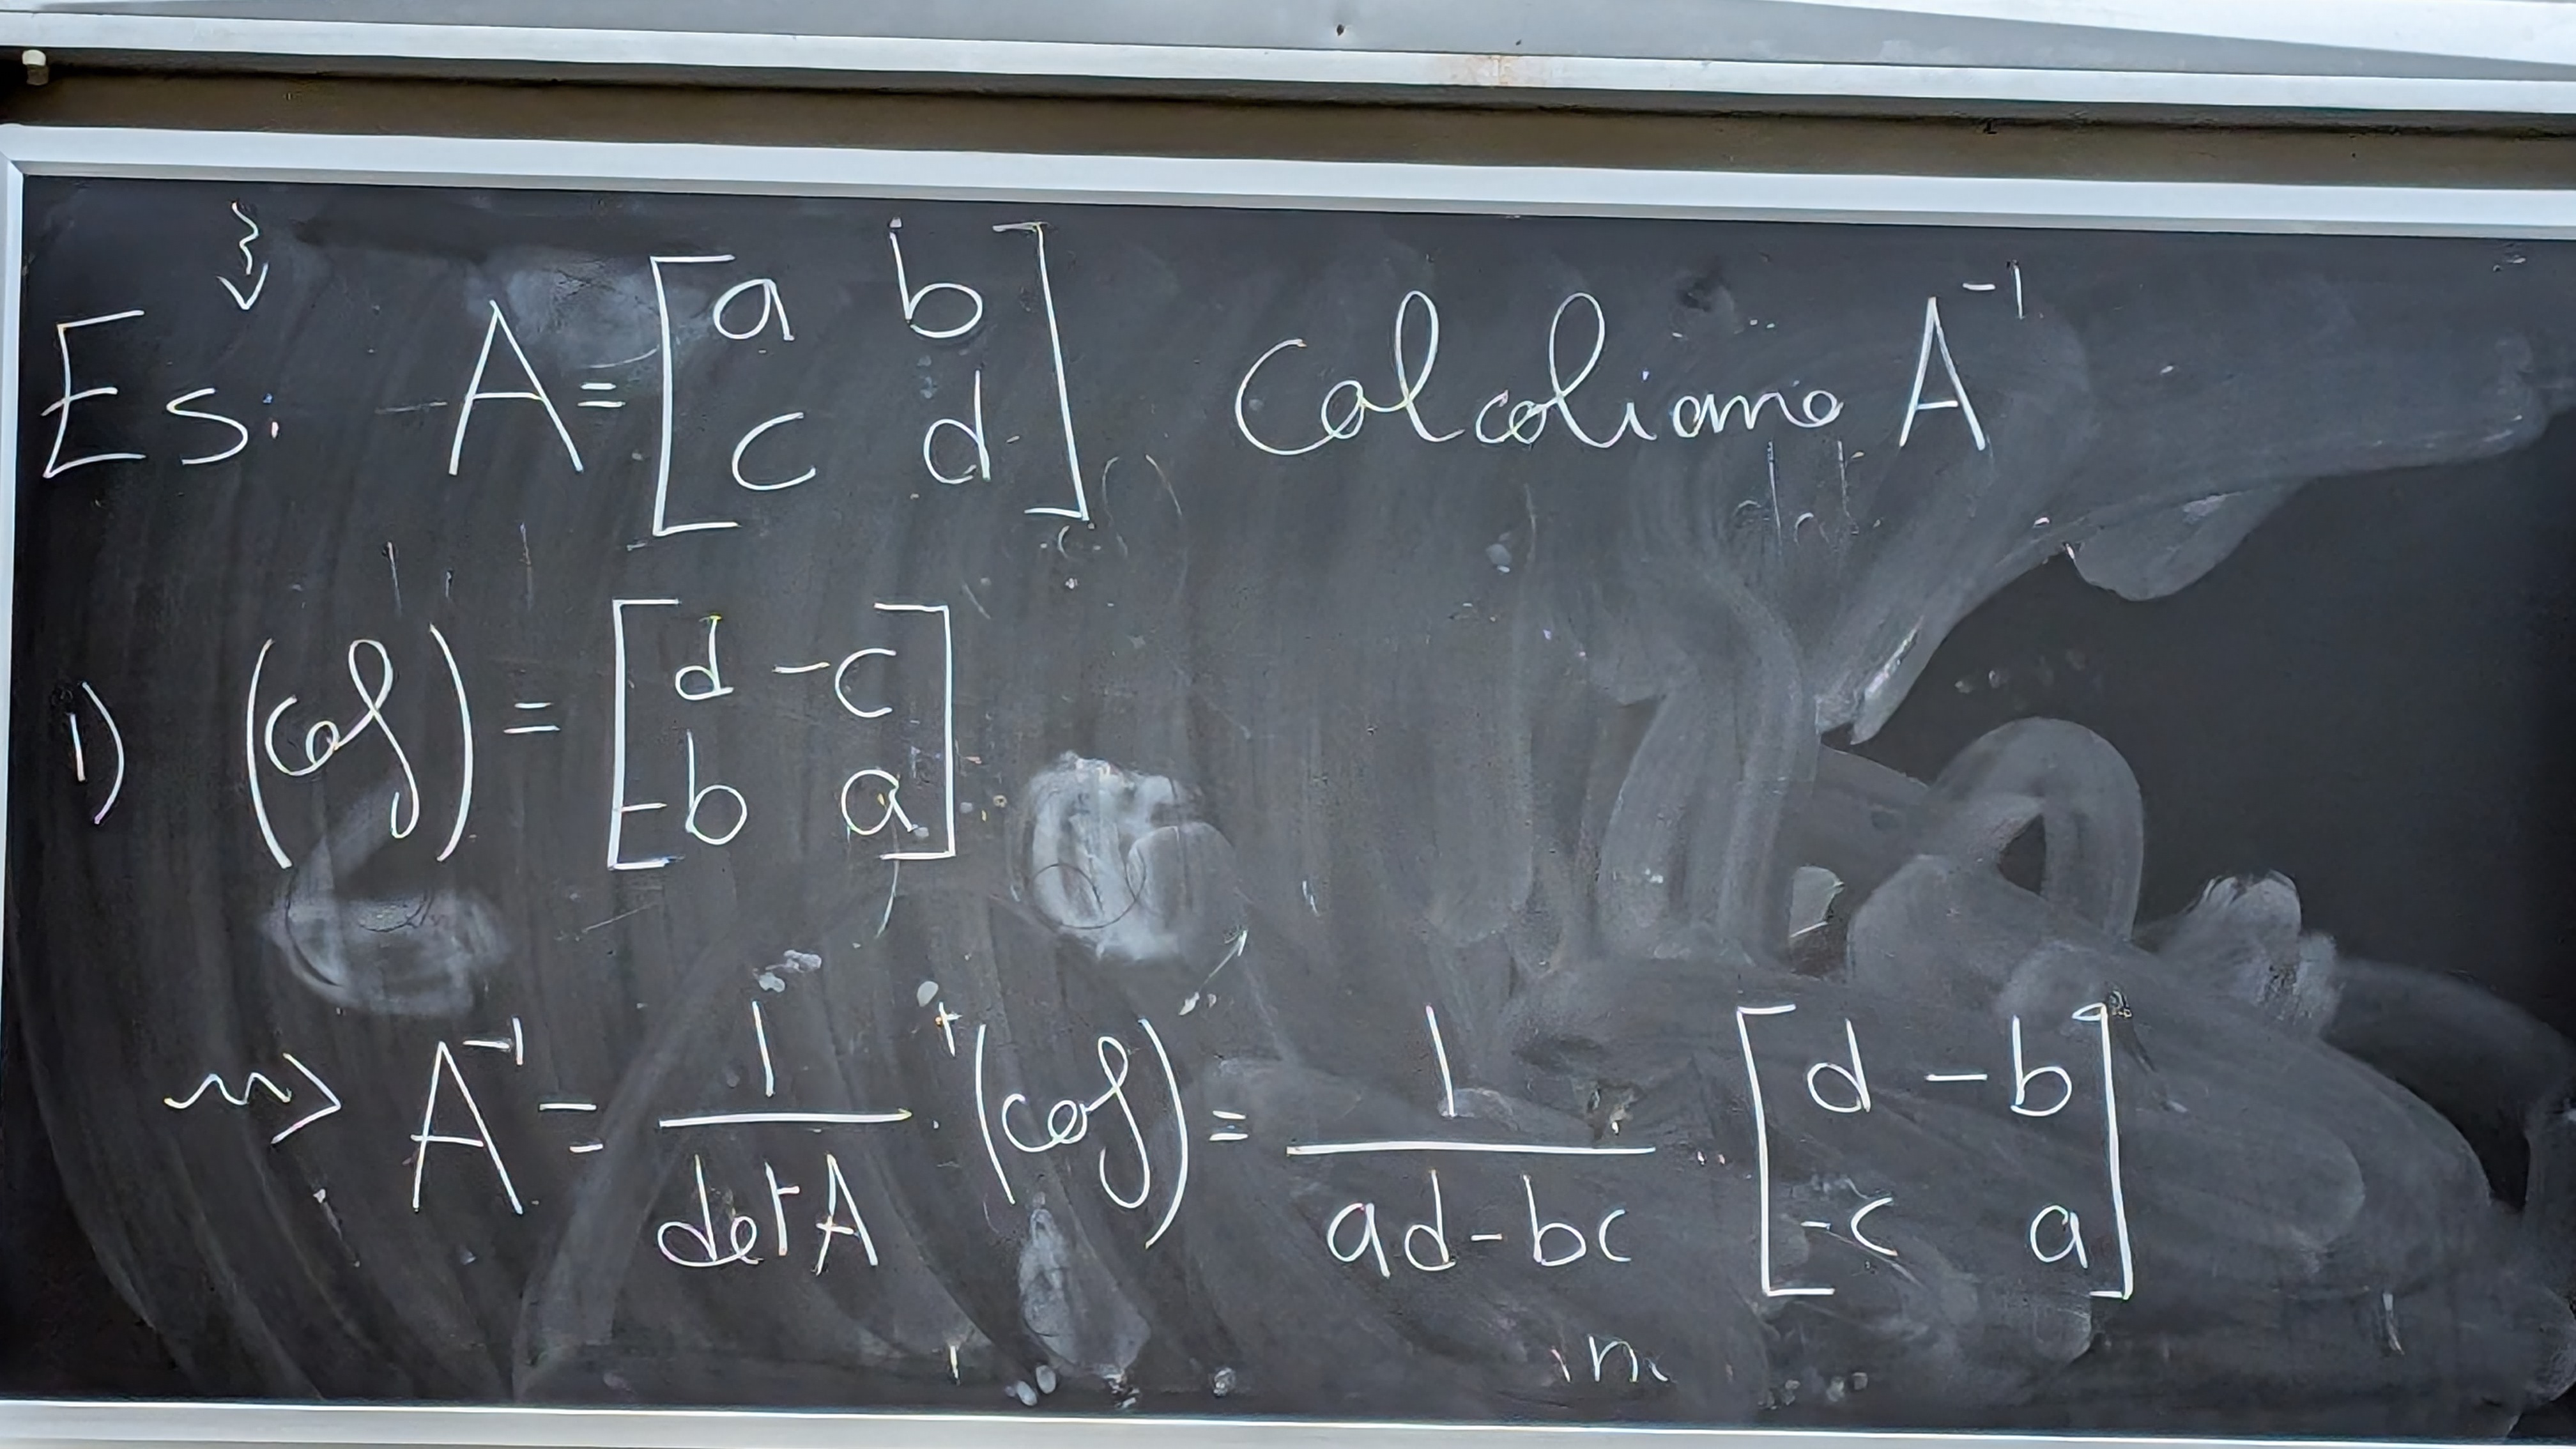 Es. A = [a b; c d] Calcoliamo A⁻¹
1) (cof) = [d -c; -b a]
⇝ A⁻¹ = 1/det A · ᵗ(cof) = 1/(ad-bc) · [d -b; -c a]